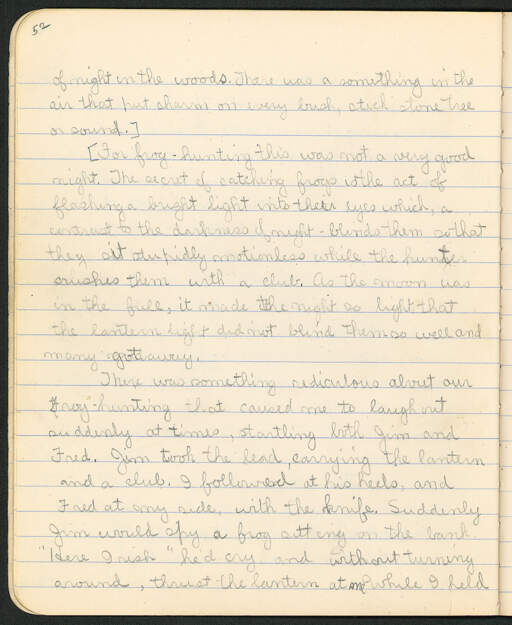 52
of night in the woods. There was a something in the
air that put charm on every bush, stick stone tree
or sound.]
[For frog-hunting this was not a very good
night. The secret of catching frogs is the act of
flashing a bright light into their eyes which, a
contrast to the darkness of night - blinds them so that
they sit stupidly motionless while the hunter
crushes them with a club. As the moon was
in the full, it made the night so light that
the lantern light did not blind them so well and
many got away.
There was something ridiculous about our
frog-hunting that caused me to laugh out
suddenly at times, startling both Jim and
Fred. Jim took the lead, carrying the lantern
and a club. I followed at his heels, and
Fred at my side, with the knife. Suddenly
Jim would spy a frog sitting on the bank.
"Here Irish" he'd cry and without turning
around, thrust the lantern at me while I held